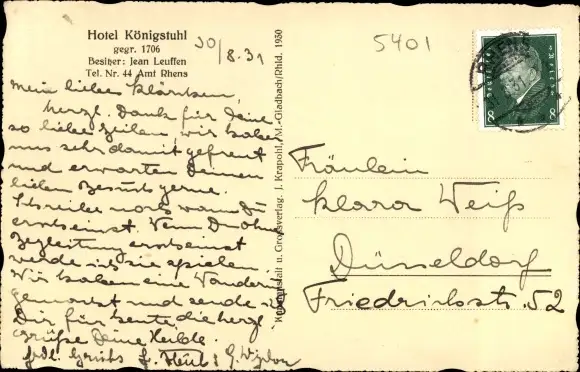 Hotel Königstuhl
gegr. 1706
Besitzer: Jean Leuffen
Tel. Nr. 44 Amt Rhens
30/8.31
5401
Mein liebes Klärchen,
herzl. Dank für Deine
so lieben Zeilen, wir haben
uns sehr damit gefreut
und erwarten Deinen
lieben Besuch gerne.
Schreibe noch wann Du
erscheinst. Wenn Du ohne
Begleitung erscheinst
werde ich sie spielen.
Wir haben eine Wanderung
gemacht und sende ich
Dir für heute die herzl.
Grüße Deine
Kunstanstalt u. Grossverlag. J. Krapohl, M.-Gladbach/Rhld. 1930
RHENS
8 8
Fräulein
Klara Weiß
Düsseldorf
Friedrichstr. 52